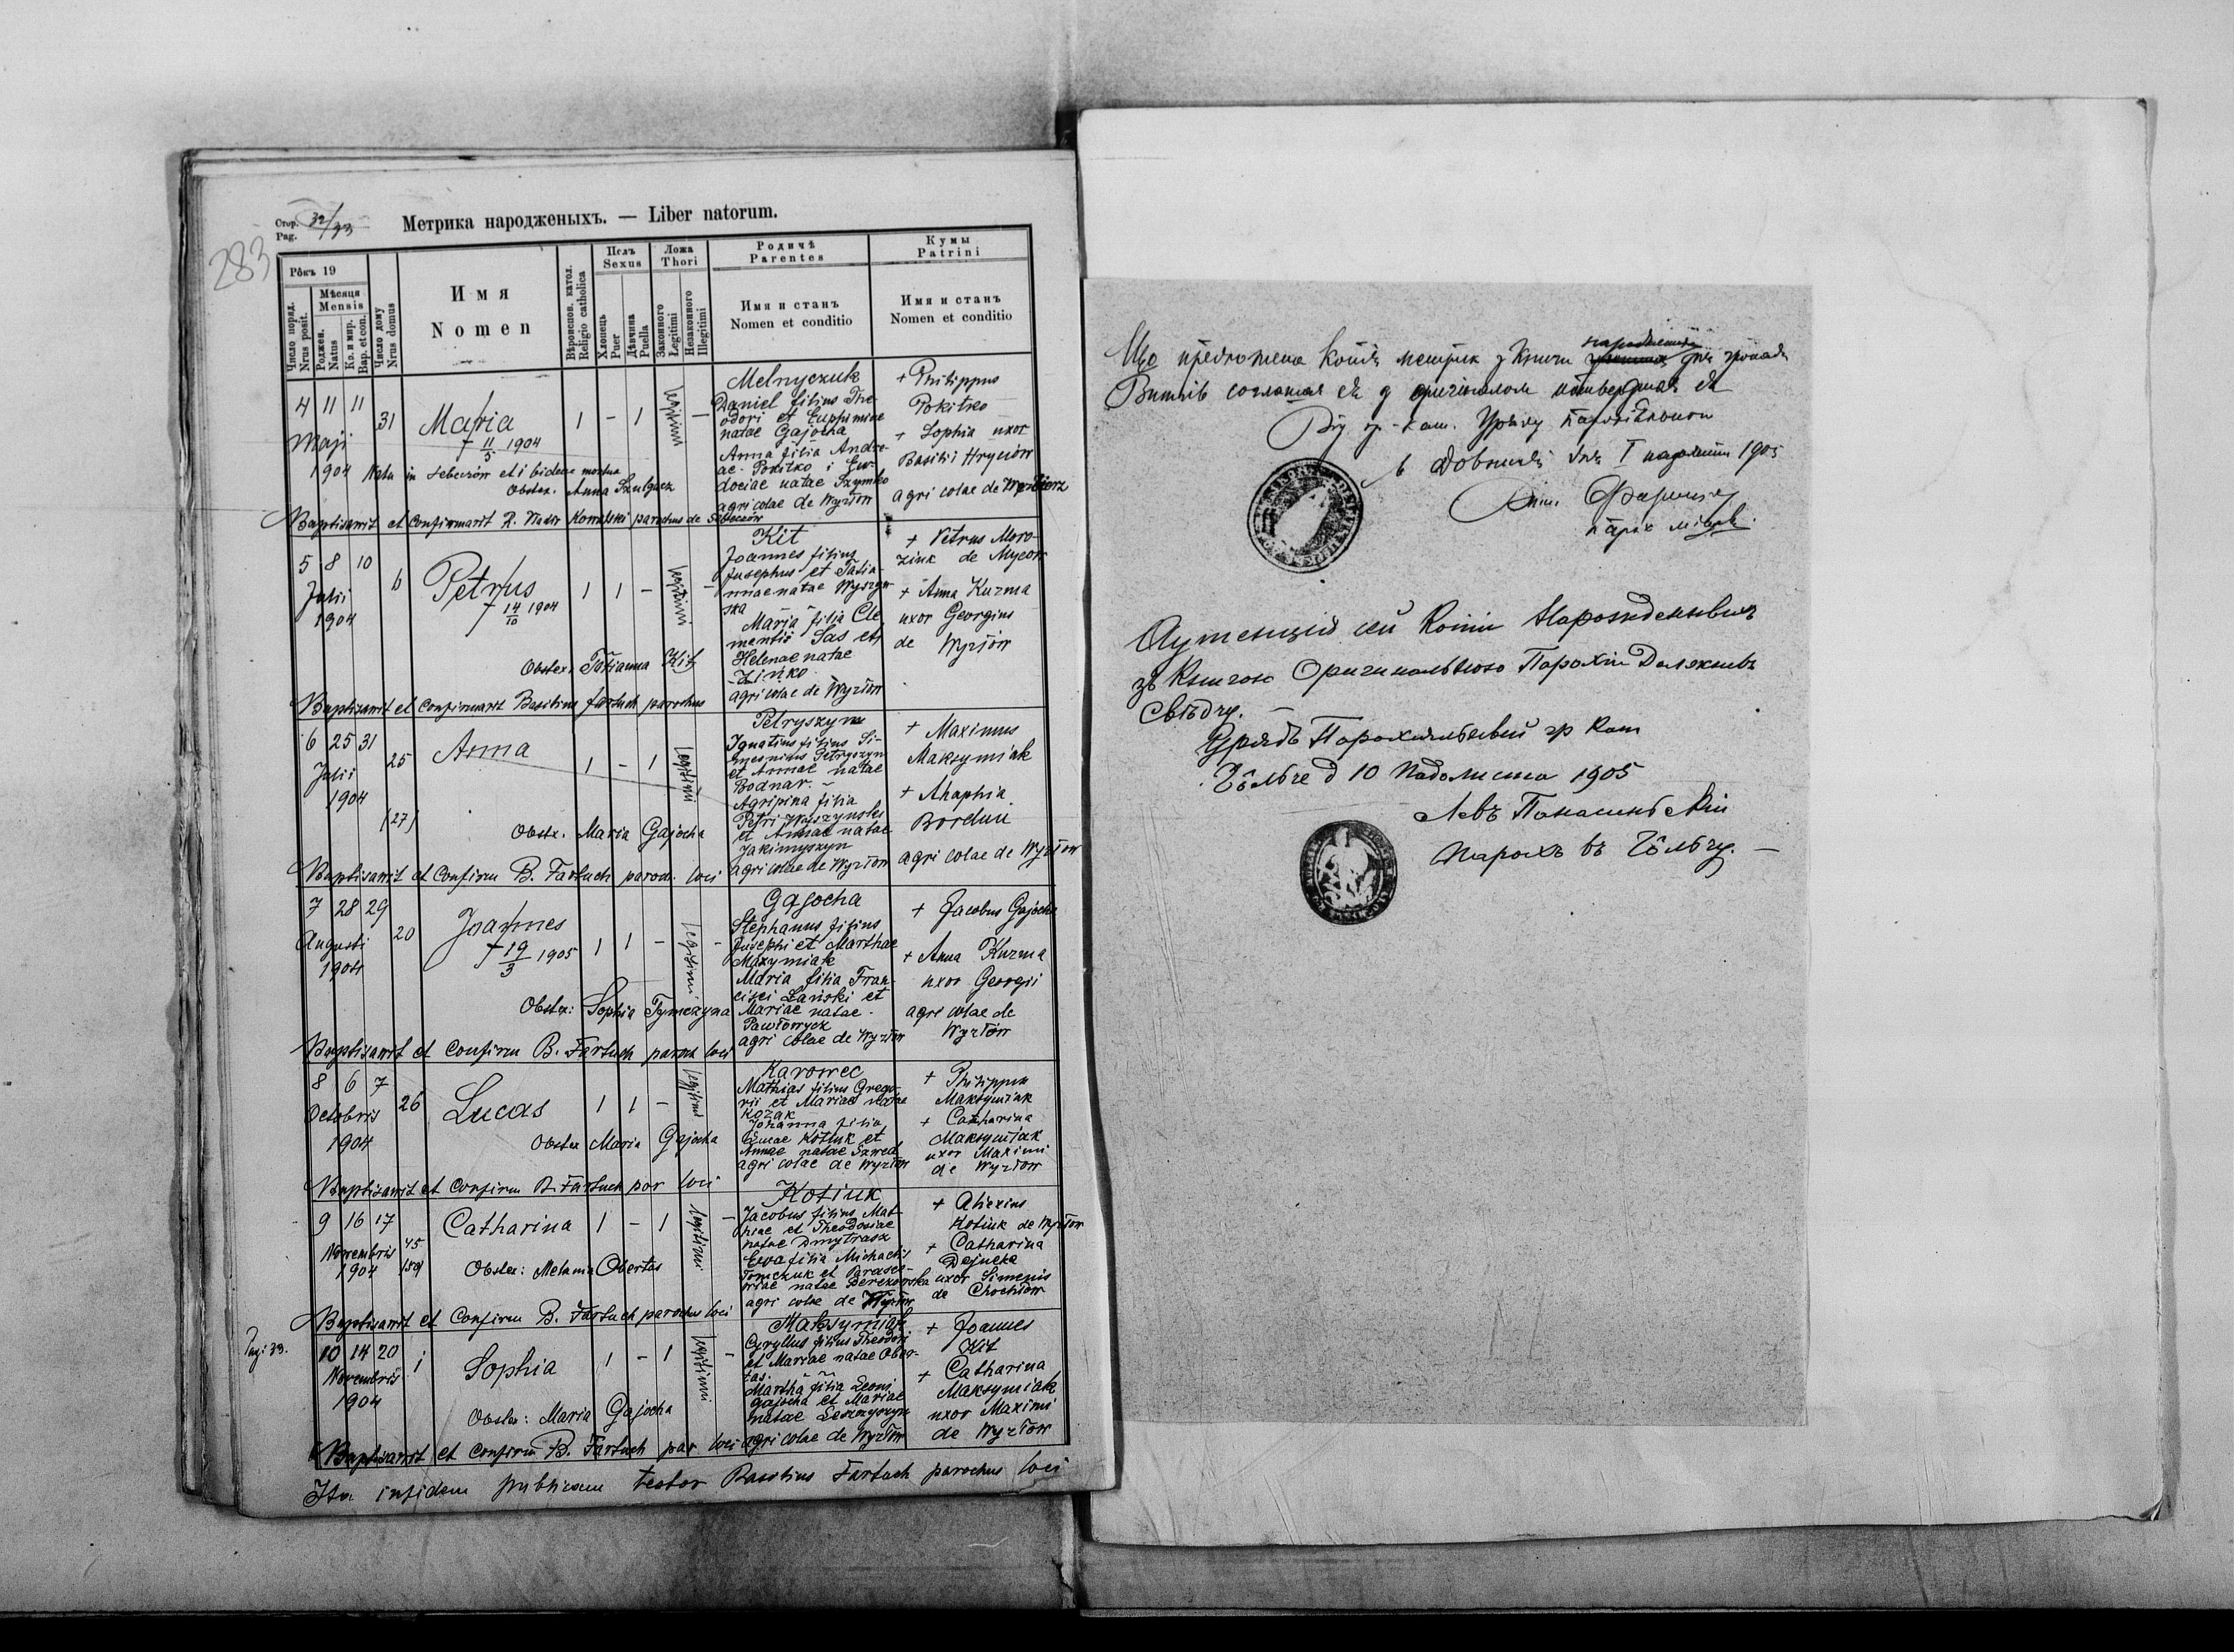 283
Стор. 32/33
Pag.
Метрика народженыхъ. — Liber natorum.
Рôкъ 19
Число поряд.
Nrus posit.
Мѣсяця
Mensis
Роджен.
Natus
Кр. и мир.
Bap. et con.
Число дому
Nrus domus
Имя
Nomen
Вѣроиспов. катол.
Religio catholica
Полъ
Sexus
Хлопець
Puer
Дѣвчина
Puella
Ложа
Thori
Законного
Legitimi
Незаконного
Illegitimi
Родичѣ
Parentes
Имя и станъ
Nomen et conditio
Кумы
Patrini
Имя и станъ
Nomen et conditio
4 11 11
Maji
1904
31
Maria
† 11/5 1904
1 - 1 legitimi -
Nata in Sebeczów et ibidem mortua
Obstex. Anna Szulgacz
Melnyczuk
Daniel filius The-
odori et Euphimiae
natae Gajocha
Anna filia Andre-
ae Pokitko i Eu-
dociae natae Szymko
agricolae de Wyzłow
+ Philippus
Pokitko
+ Sophia uxor
Basilii Hryciów
agricolae de
Baptisavit et confirmavit R. Kowalski parochus de Sebeczów
5 8 10
Julii
1904
6
Petrus
† 14/10 1904
1 1 - legitimi -
Obstex: Tatianna Kit
Kit
Joannes filius
Josephus et Tatia-
nnae natae Wyszyn-
ska
Maria filia Cle
mentis Sas et
Helenae natae
Zińko
agricolae de Wyzłow
+ Petrus Moro-
ziuk de Mycow
+ Anna Kuzma
uxor Georgius
de Wyzłow
Baptisavit et confirmavit Basilius Fartuch parochus
6 25 31
Julii
1904
25
(27)
Anna
1 - 1 legitimi
Obstx. Maria Gajocha
Petryszyn
Ignatius filius Si-
meonius Petryszyn
et Annae natae
Bodnar.
Agripina filia
Petri Wyszynski
et Annae natae
Jakimyszyn
agricolae de Wyzłow
+ Maximus
Maksymiak
+ Ahaphia
Bordun
agricolae de Wyzłow
Baptisavit et confirm B. Fartuch paroch. loci
7 28 29
Augusti
1904
20
Joannes
† 19/3 1905
1 1 - legitimi -
Obstex: Sophia Tymczyna
Gajocha
Stephanus filius
Josephi et Marthae
Maxymiak
Maria filia Fran-
cisci Łański et
Mariae natae
Pawłowycz
agricolae de Wyzłow
+ Jacobus Gajocha
+ Anna Kuzma
uxor Georgii
agricolae de
Wyzłow
Baptisavit et confirm B. Fartuch paroch loci
8 6 7
Octobris
1904
26
Lucas
1 1 - legitimi
Obstex Maria Gajocha
Karowec
Mathias filius Grego-
rii et Mariae natae
Kozak
Johanna filia
Lucae Kotiuk et
Annae natae Szwed
agricolae de Wyzłow
+ Philippus
Maksymiak
+ Catharina
Maksymiak
uxor Maximi
de Wyzłow
Baptisavit et confirm B. Fartuch par loci
9 16 17
Novembris
1904
45
Catharina
1 - 1 legitimi -
Obstex: Melania Obertas
Kotiuk
Jacobus filius Mat-
hiae et Theodosiae
natae Dmytrasz
Eva filia Michaelis
Tomczuk et Parasce-
viae natae Derezowska
agricolae de Wyzłow
+ Alexius
Kotiuk de Wyzłow
+ Catharina
Dejneka
uxor Simenis
de Chochłow
Baptisavit et confirm B. Fartuch parochus loci
Pag: 33.
10 14 20
Novembris
1904
1
Sophia
1 - 1 legitimi -
Obstex: Maria Gajocha
Maksymiak
Cyryllus filius Theodori
et Mariae natae Ober-
tas.
Martha filia Leoni
Gajocha et Mariae
natae Leszczyszyn
agricolae de Wyzłow
+ Joannes
Kit
+ Catharina
Maksymiak
uxor Maximi
de Wyzłow
Baptisavit et confirm B. Fartuch par loci
Ita in fidem publicam testor Basilius Fartuch parochus loci
Що предложена копія метрик з книги народження для громади
Витків согласна єсть з оригіналом потверджає ся
Від гр.-кат. Уряду парохіяльного
в Добмчи дня 1 падолиста 1905
парох місцев.
Аутенцію сей копіи Народженныхъ
зъ книгою Оригинальною Парохіи
свѣдчу. —
Урядъ Парохіяльный гр кат
Жôльче д 10 Падолиста 1905
Левъ
парохъ въ Жôльчу. —